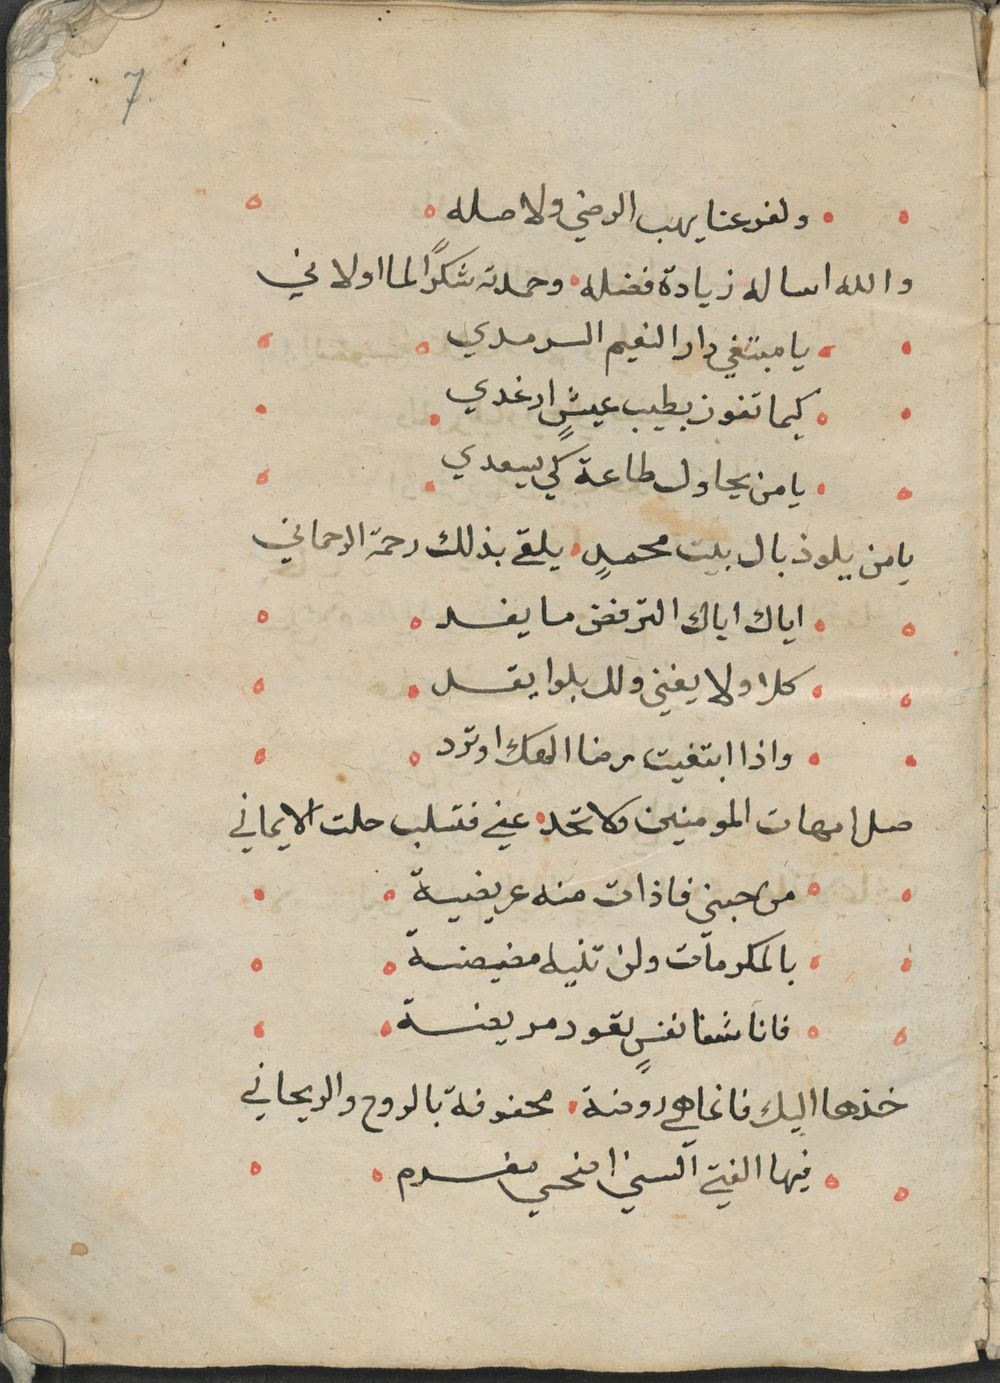 7
ولغو عنا يهب الرضي ولاصله
والله اساله زيادة فضله وحمدته شكرًا لما اولاني
يا مبتغي دار النعيم السرمدي
كيما تفوز بطيب عيشٍ ارغدي
يا من يحاول طاعة كي يسعدي
يا من يلوذ بال بيت محمدٍ يلقى بذلك رحمة الرحماني
اياك اياك الترفض ما يفد
كلا ولا يغني وللبلوا يقد
واذا ابتغيت رضا الهك او ترد
صل امهات المومنين ولا تحد عني فتسلب حلت الايماني
من حبني فاذات منه عريضية
بالمكرمات ولن تنيله مضيضة
فانا شفا نفسٍ بقود مريضة
خذها اليك فانما هي روضة محفوفة بالروح والريحاني
فيها الفتى السني اضحى مغرم